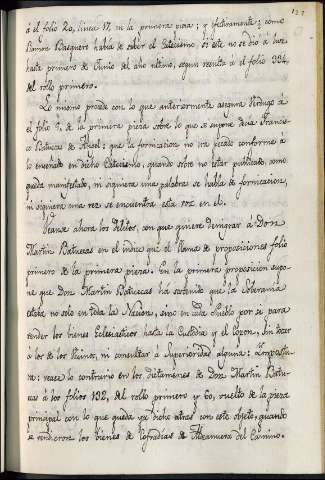 á el folio 20, linea 17, en la primera pieza; y efectivamente; como
Ramon Baeguero habia de saber el Catecismo, si este no se dió á luz
hasta primero de Junio del año ultimo, segun resulta á el folio 294,
del rollo primero.
Lo mismo procede con lo que anteriormente asegura Verdugo á
el folio 7, de la primera pieza sobre lo que se supone decia Francis-
co Batuecas de Angel: que la fornicacion no era pecado conforme á
lo enseñado en dicho Catecismo, quando sobre no estar publicado, como
queda manifestado, ni siquiera una palabra se habla de fornicacion,
ni siquiera una vez se encuentra esta voz en el.
Veanse ahora los delitos, con que quiere denigrar á Don
Martin Batuecas en el indice que él llama de proposiciones folio
primero de la primera pieza. En la primera proposicion supo-
ne que Don Martin Batuecas ha sostenido que la Soberania
estaba no solo en toda la Nacion, sino en cada Pueblo por si para
vender los bienes Eclesiasticos hasta la Custodia y el Copon, sin tocar
á los de los Vecinos, ni consultar á Superioridad alguna: Impostu-
ra: vease lo contrario en los dictamenes de Don Martin Batu-
ecas á los folios 192, del rollo primero y 60, vuelto de la pieza
principal con lo que queda ya dicho atras con este objeto, quando
se vendieron los bienes de Cofradias de Aldeanueva del Camino.